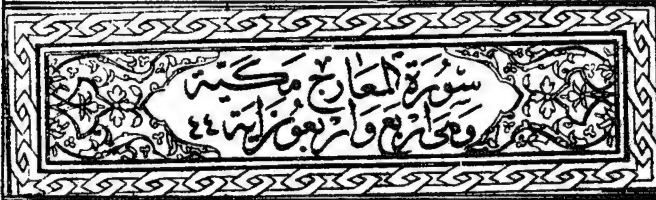 سورة المعارج مكية
وهى اربع واربعون اية ٤٤